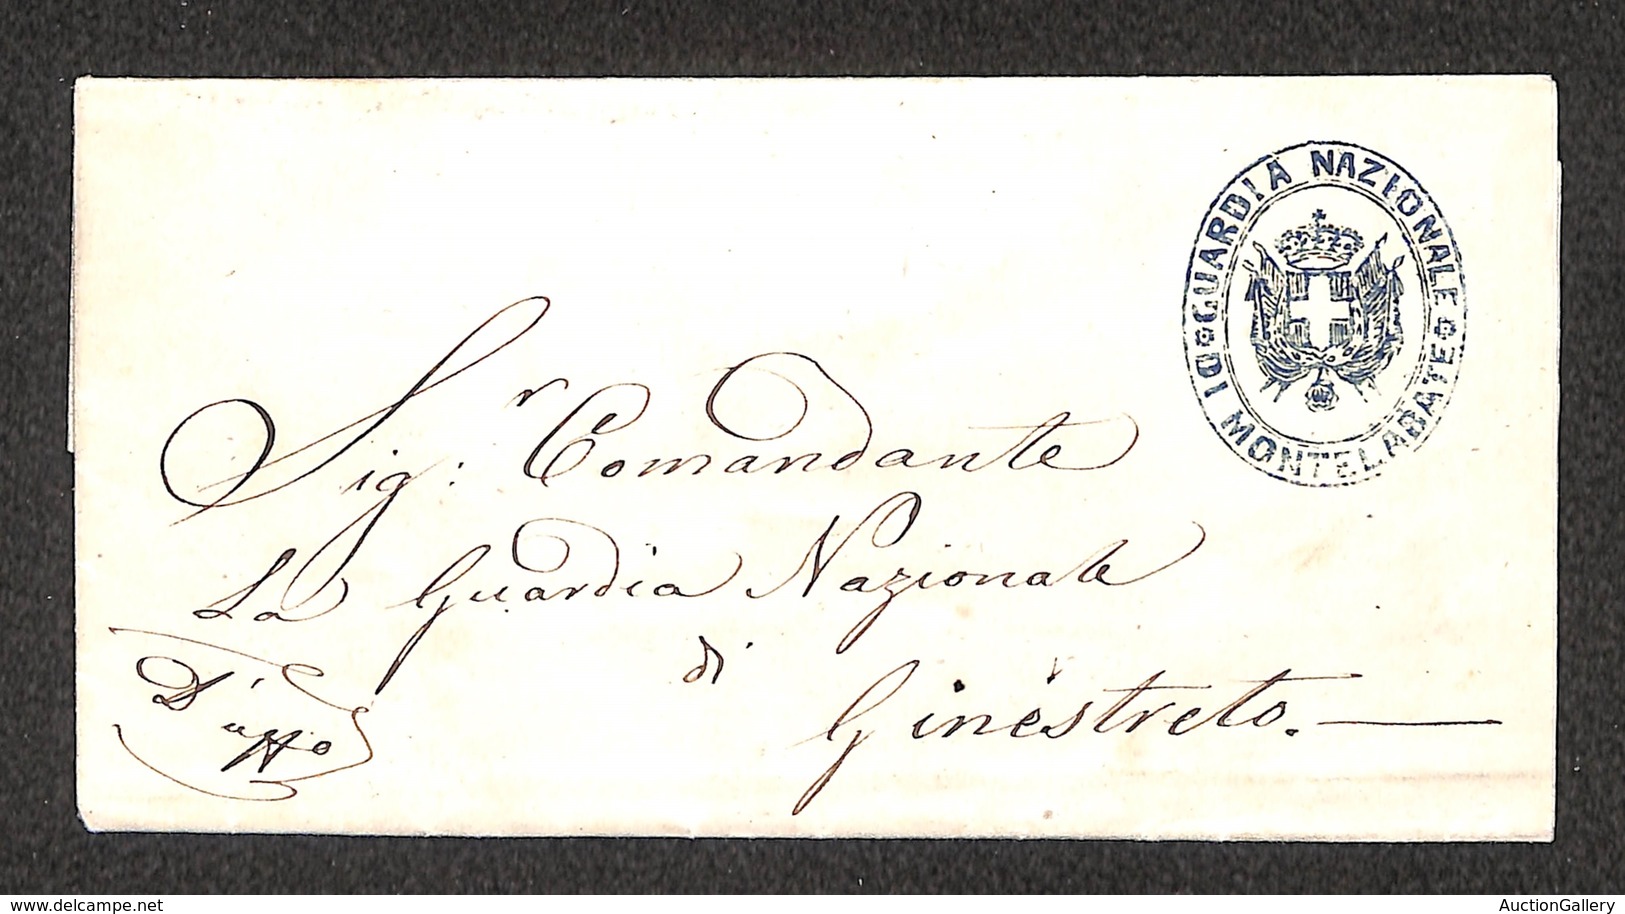 GUARDIA NAZIONALE
DI MONTELABATE
Sig:r Comandante
La Guardia Nazionale
di
Ginestreto.
D'uffo
delcampe.net
AuctionGallery